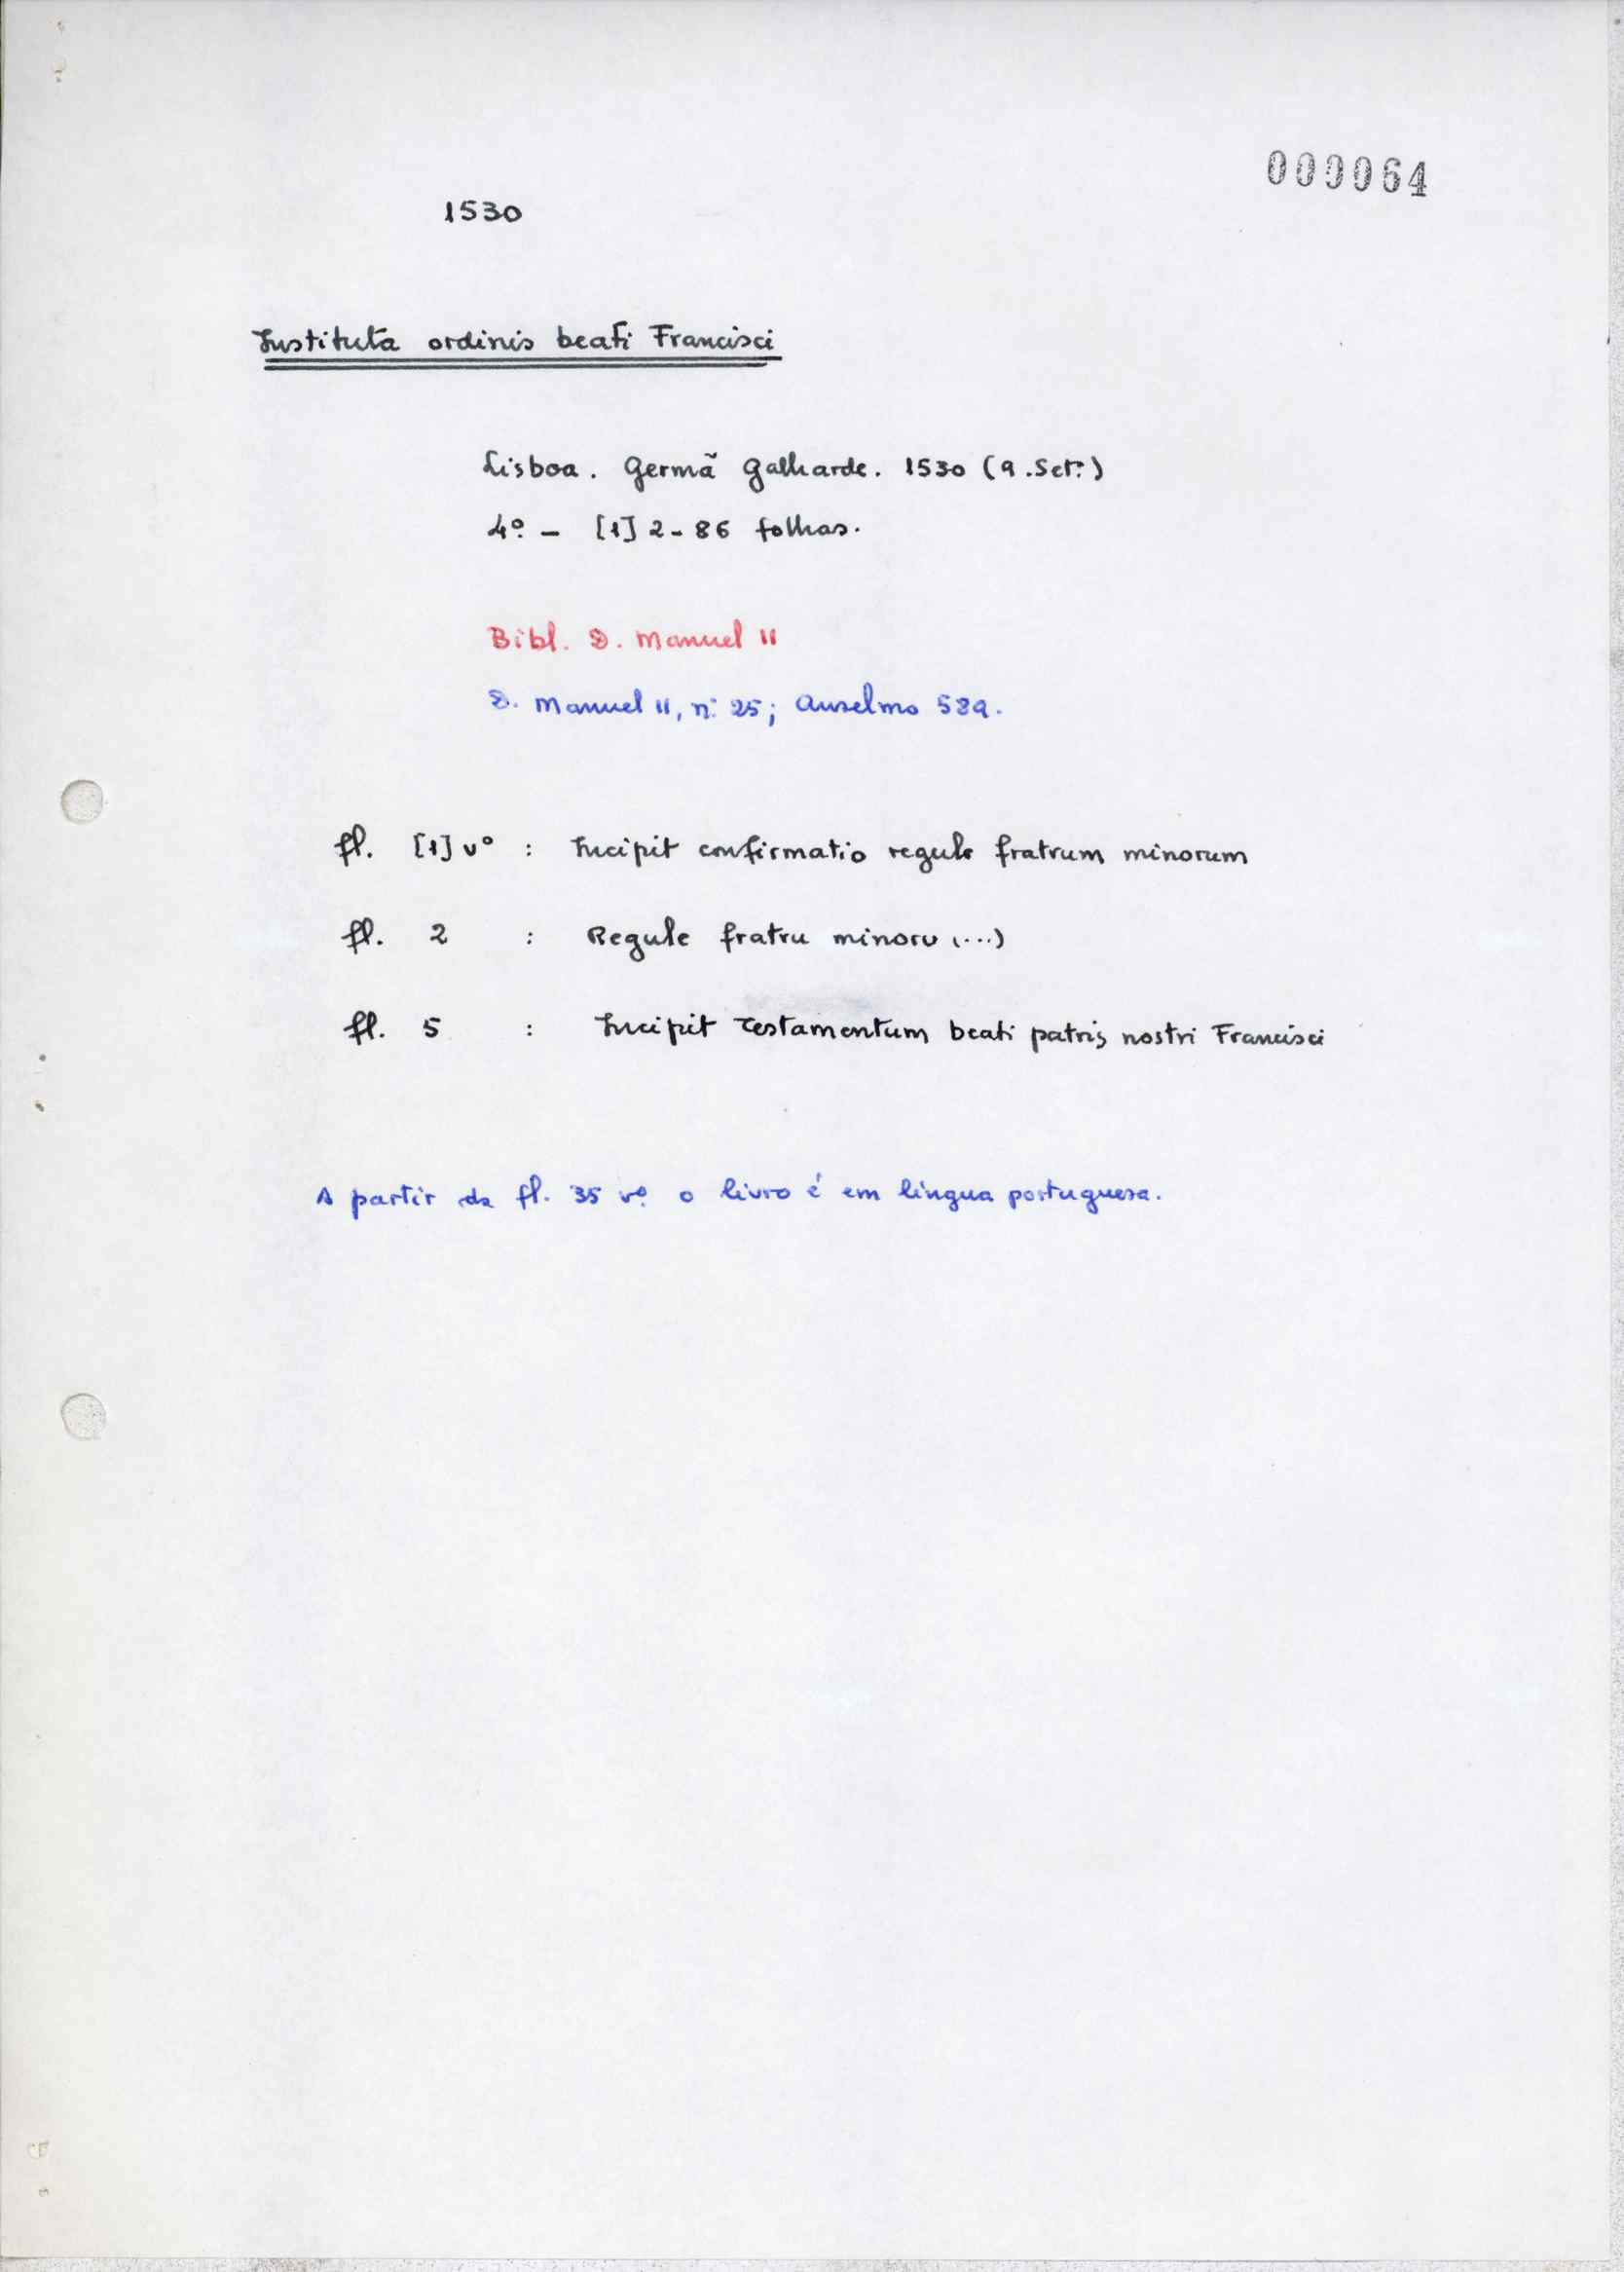 000064
1530
Instituta ordinis beati Francisci
Lisboa. Germã Galharde. 1530 (9.Set.º)
4º - [1] 2-86 folhas.
Bibl. D. Manuel II
D. Manuel II, nº 25; Anselmo 589.
fl. [1] vº : Incipit confirmatio regule fratrum minorum
fl. 2 : Regule fratru minoru (...)
fl. 5 : Incipit testamentum beati patris nostri Francisci
A partir da fl. 35 vº o livro é em língua portuguesa.